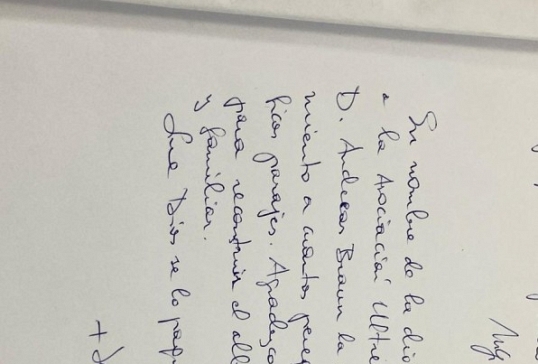 En nombre de la dió
a la Asociació Ultre
D. Andreas Braun la
miento a cuantos pereg
ficos parajes. Agradezco
para reconstruir el alb
y familiar.
Que Dios se lo pagu
+ J